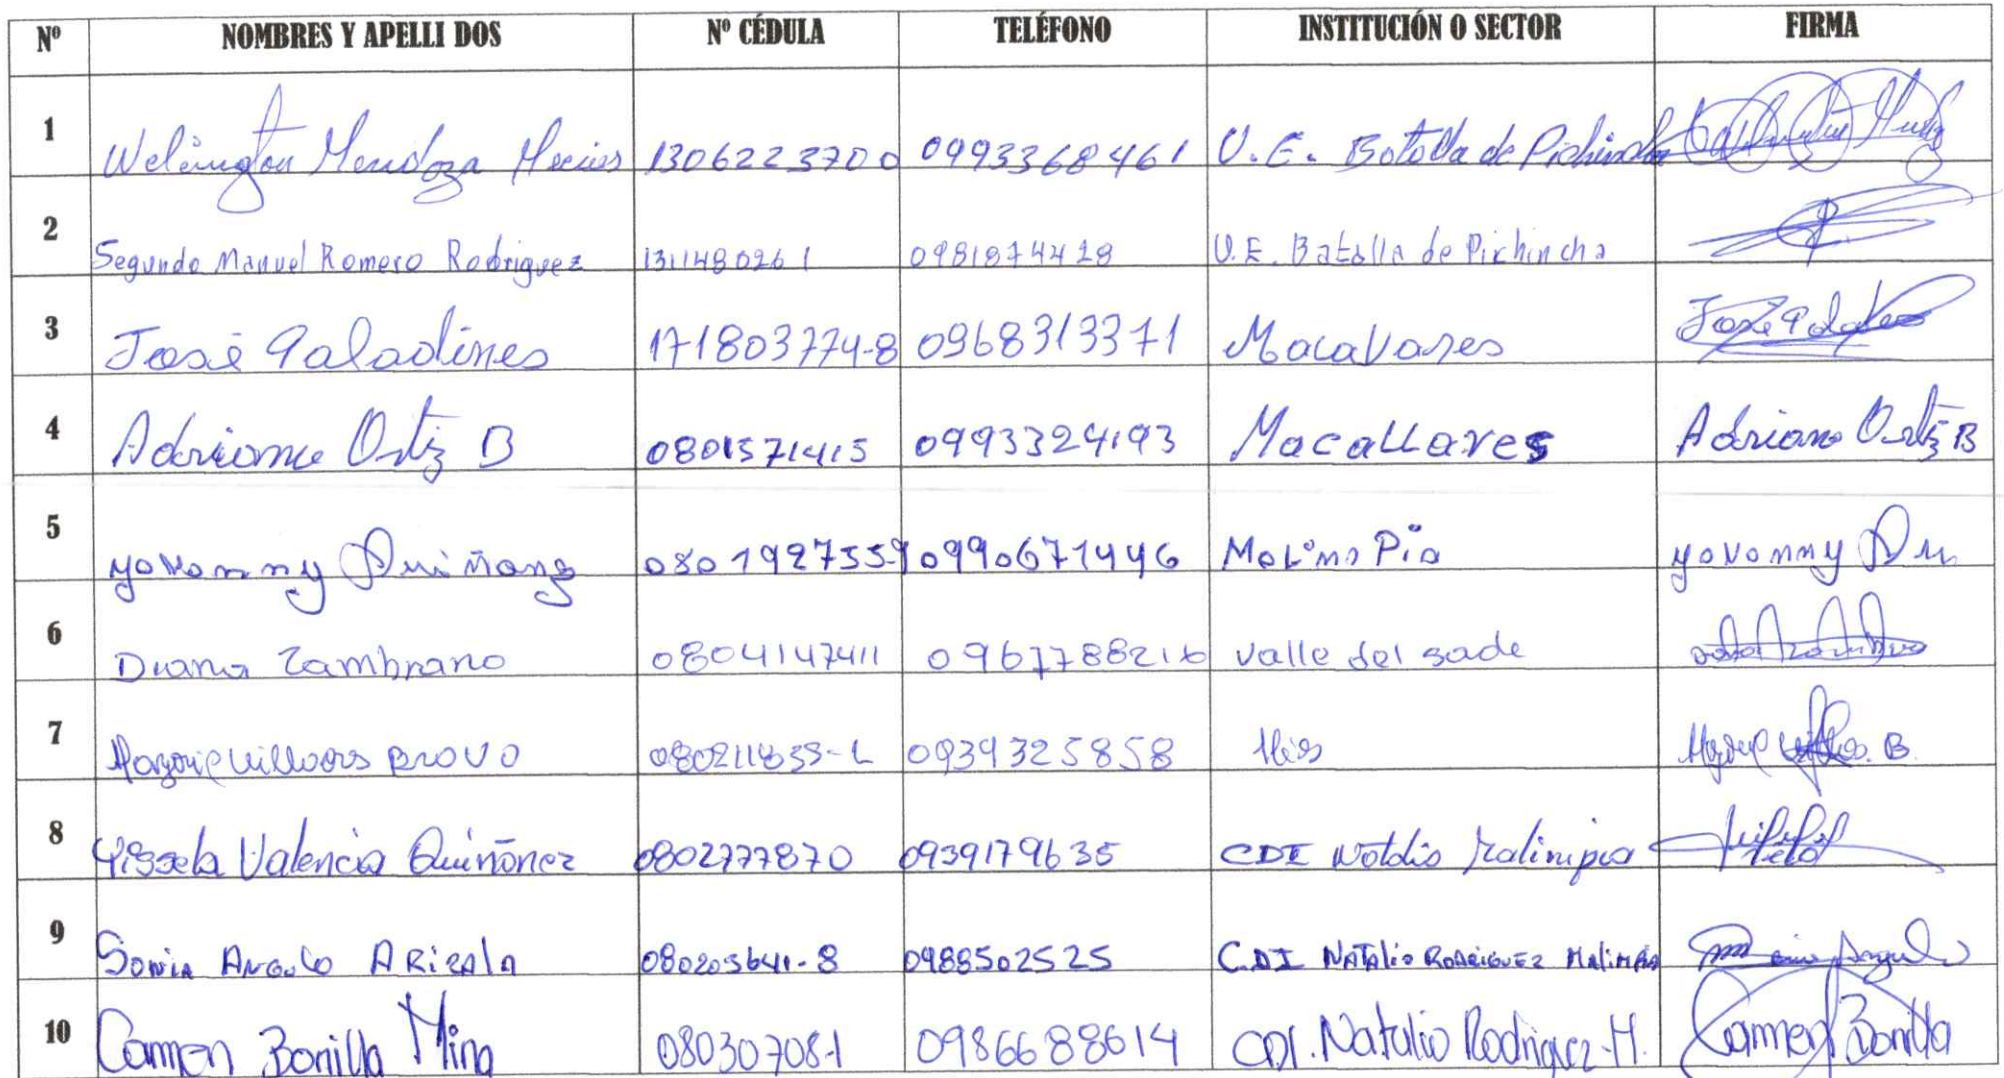 Nº NOMBRES Y APELLI DOS Nº CÉDULA TELÉFONO INSTITUCIÓN O SECTOR FIRMA
1 Welington Mendoza Macias 1306223700 0993368461 U.E. Batalla de Pichincha
2 Segundo Manuel Romero Rodriguez 1311480261 0981874428 U.E. Batalla de Pichincha
3 José Paladines 171803774-8 0968313371 Macallares José
4 Adriana Ortiz B 0801571415 0993324193 Macallares Adriano Ortiz B
5 yovonny Quiñonz 080192755-9 0990671446 Molino Pio yovonny Qu
6 Diana Zambrano 0804147411 0967788216 valle del sade
7 Bravo 0939325858 B.
8 Yissela Valencia Quiñonez 0802777870 0939179635 CDI Malimpia
9 Sonia Angulo ARizala 080205641-8 0988502525 C.D.I NATAliO RODRiGUEZ MaliMPia Angulo
10 Carmen Bonilla Mina 080307081 0986688614 CDI. Natalio Rodriguez-M. Carmen Bonilla